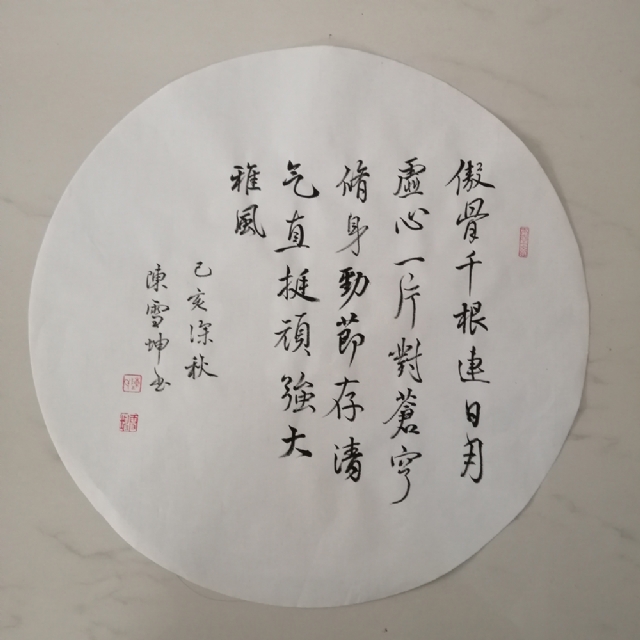 傲骨千根連日月
虛心一片對蒼穹
脩身勁節存清
气直挺頑強大
雅風
己亥深秋
陳雪坤书